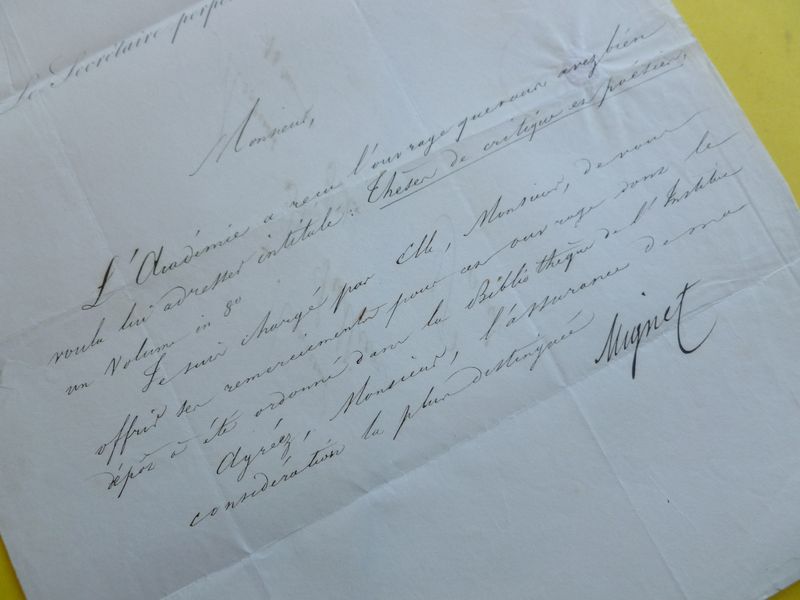 Le Secrétaire perpé
Monsieur,
L'Académie a reçu l'ouvrage que vous avez bien
voulu lui adresser intitulé: Thèses de critique et poésies,
un volume in 8o
Je suis chargé par Elle, Monsieur, de vous
offrir ses remerciements pour cet ouvrage dont le
dépôt a été ordonné dans la Bibliothèque de l'Institut
Agréez, Monsieur, l'assurance de ma
considération la plus distinguée
Mignet